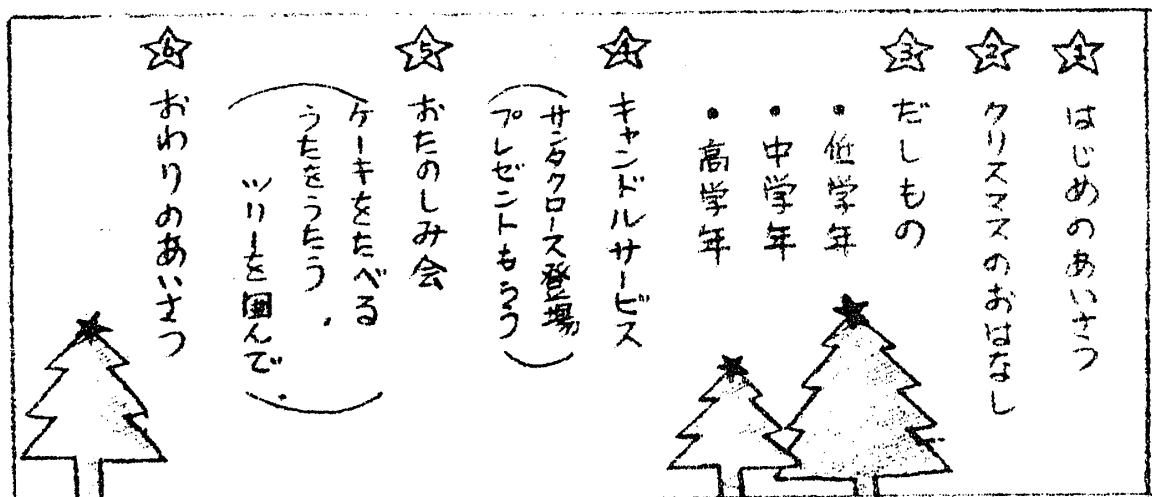 1 はじめのあいさつ
2 クリスマスのおはなし
3 だしもの
・低学年
・中学年
・高学年
4 キャンドルサービス
(サンタクロース登場
プレゼントもらう)
5 おたのしみ会
(ケーキをたべる
うたをうたう.
ツリーを囲んで.)
6 おわりのあいさつ